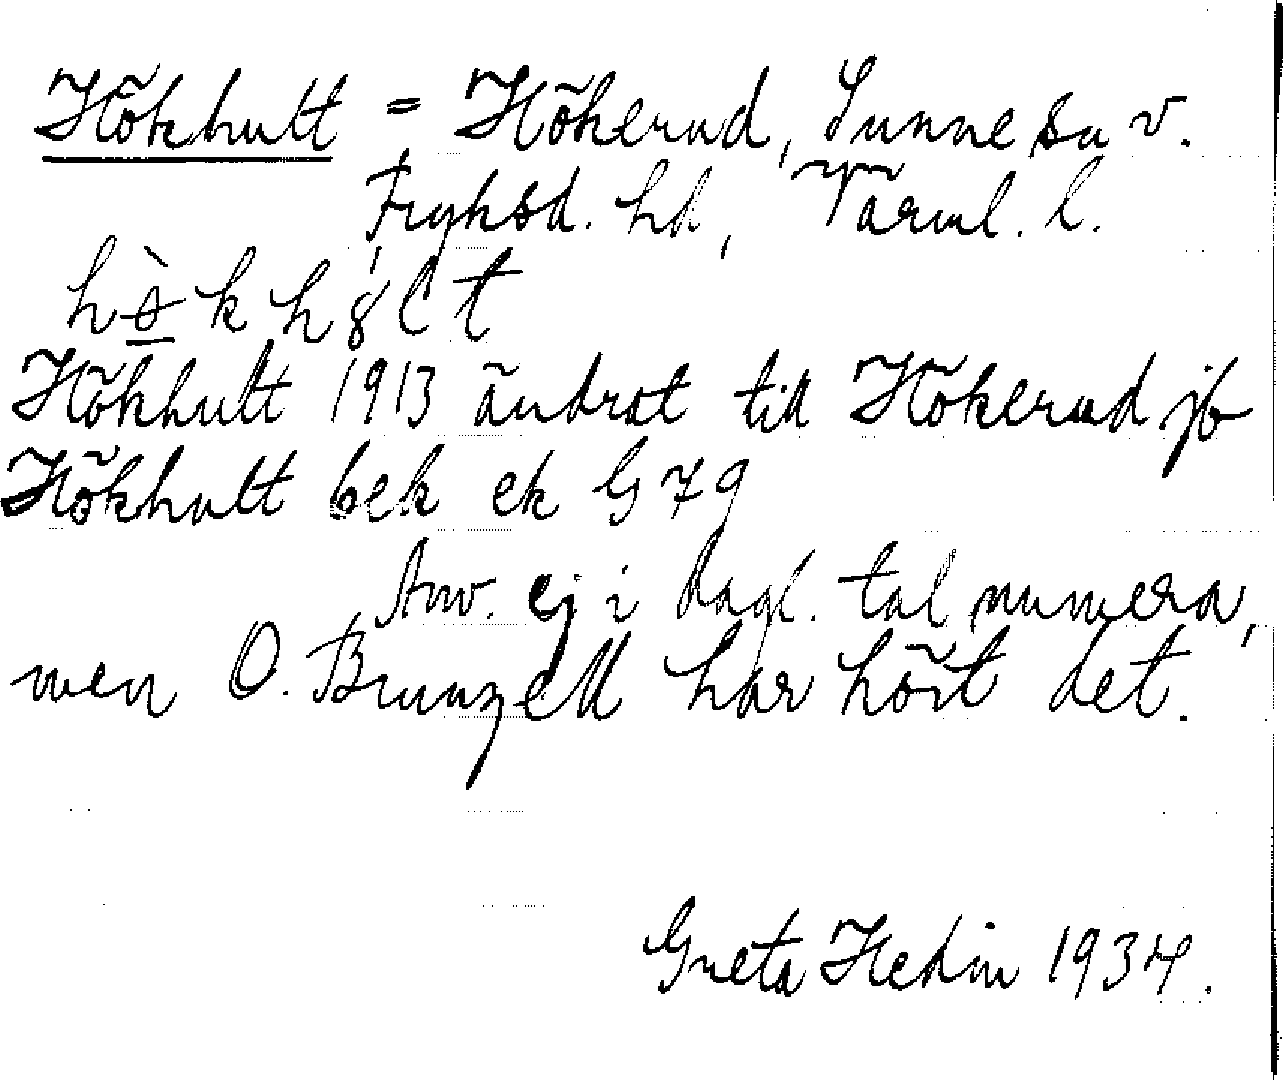 Hökhult = Hökerud, Sunne sn v.
Fryksd. hd, Värml. l.
h k h l t
Hökhult 1913 ändrat till Hökerud jb
Hökhult bek ek G 79
Anv. ej i dagl. tal numera,
men O. Brunzell har hört det.
Greta Hedin 1934.